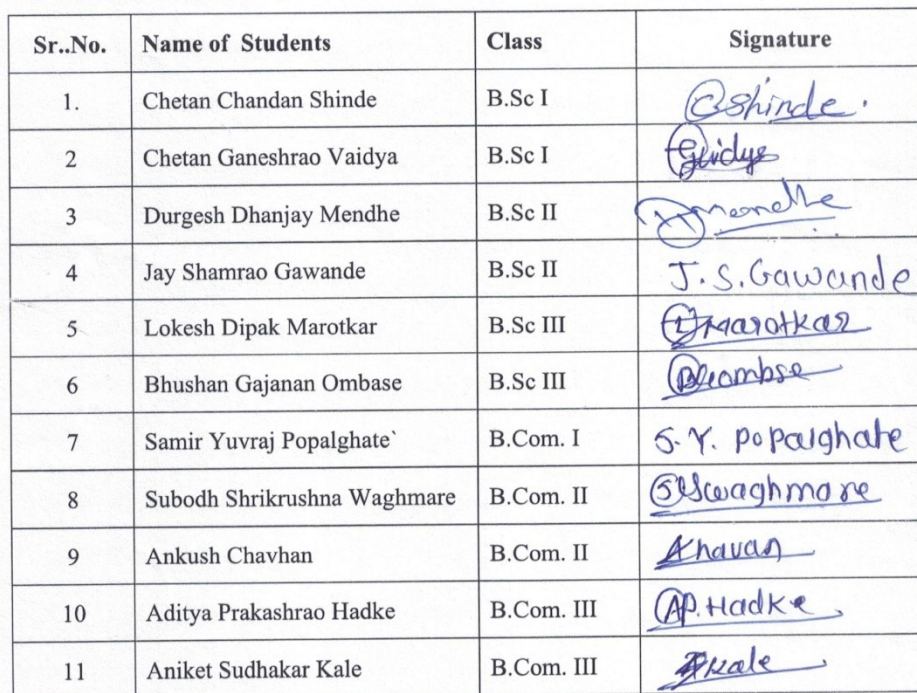 Sr..No. Name of Students Class Signature
1. Chetan Chandan Shinde B.Sc I CShinde.
2 Chetan Ganeshrao Vaidya B.Sc I
3 Durgesh Dhanjay Mendhe B.Sc II Mendhe
4 Jay Shamrao Gawande B.Sc II J.S.Gawande
5 Lokesh Dipak Marotkar B.Sc III LMarotkar
6 Bhushan Gajanan Ombase B.Sc III
7 Samir Yuvraj Popalghate` B.Com. I S.Y. Popalghate
8 Subodh Shrikrushna Waghmare B.Com. II SSwaghmare
9 Ankush Chavhan B.Com. II
10 Aditya Prakashrao Hadke B.Com. III AP.Hadke
11 Aniket Sudhakar Kale B.Com. III Akale